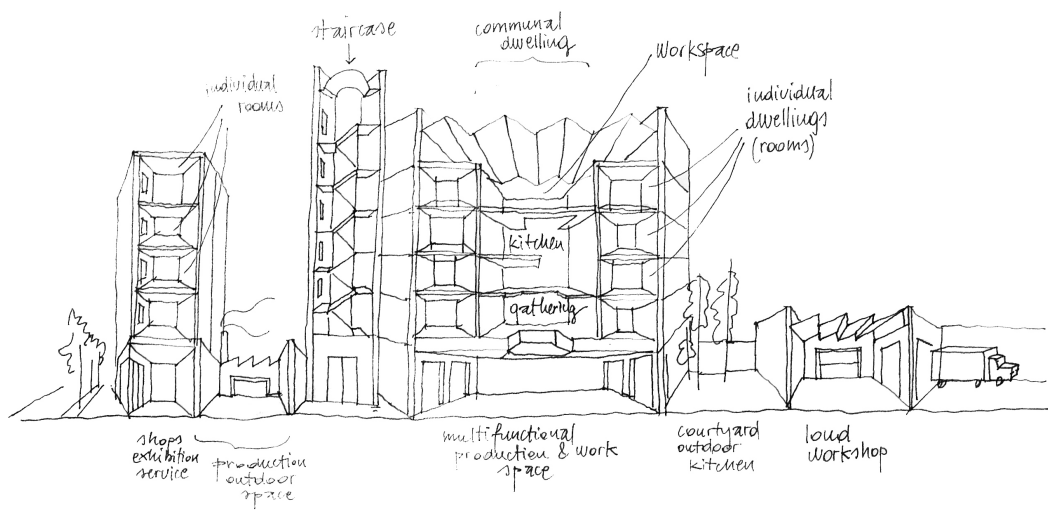 staircase
communal
dwelling
workspace
individual
rooms
individual
dwellings
(rooms)
kitchen
gathering
shops
exhibition
service
production
outdoor
space
multifunctional
production & work
space
courtyard
outdoor
kitchen
loud
workshop